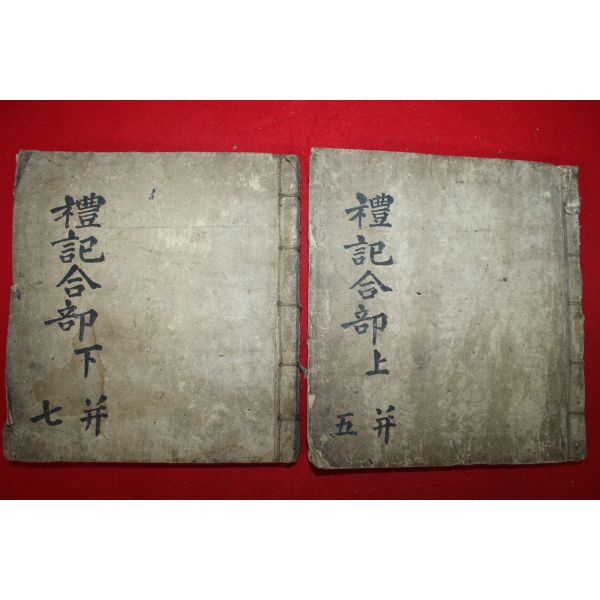 禮記合部上
幷五
禮記合部下
幷七